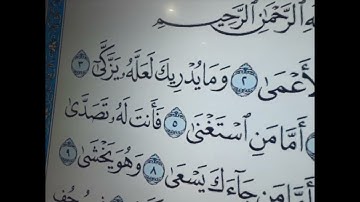 ٱلرَّحْمَٰنِ ٱلرَّحِيمِ
ٱلْأَعْمَىٰ ٢ وَمَا يُدْرِيكَ لَعَلَّهُۥ يَزَّكَّىٰٓ ٣
أَمَّا مَنِ ٱسْتَغْنَىٰ ٥ فَأَنتَ لَهُۥ تَصَدَّىٰ
مَن جَآءَكَ يَسْعَىٰ ٨ وَهُوَ يَخْشَىٰ ٩